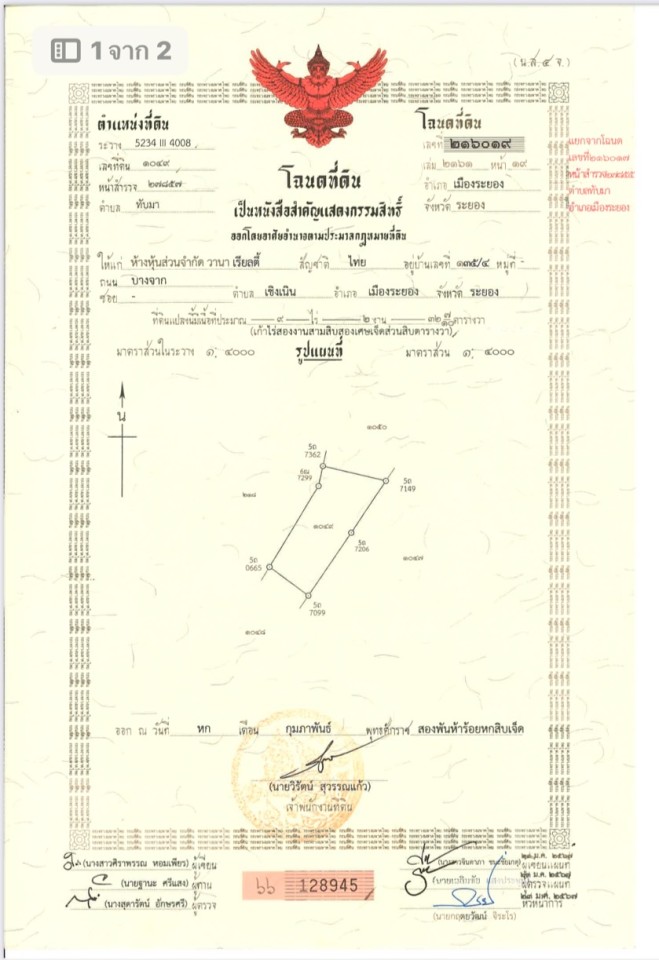 1 จาก 2
(น.ส.๔ จ.)
ตำแหน่งที่ดิน
ระวาง 5234 III 4008
เลขที่ดิน ๑๐๔๙
หน้าสำรวจ ๒๗๘๕๗
ตำบล ทับมา
โฉนดที่ดิน
เลขที่ ๒๑๖๐๑๙
เล่ม ๒๑๖๑ หน้า ๑๙
อำเภอ เมืองระยอง
จังหวัด ระยอง
แยกจากโฉนด
เลขที่๒๑๖๐๑๗
หน้าสำรวจ
ตำบลทับมา
อำเภอเมืองระยอง
โฉนดที่ดิน
เป็นหนังสือสำคัญแสดงกรรมสิทธิ์
ออกโดยอาศัยอำนาจตามประมวลกฎหมายที่ดิน
ให้แก่ ห้างหุ้นส่วนจำกัด วานา เรียลตี้ สัญชาติ ไทย อยู่บ้านเลขที่ ๑๓๕/๔ หมู่ที่ -
ถนน บางจาก
ซอย - ตำบล เชิงเนิน อำเภอ เมืองระยอง จังหวัด ระยอง
ที่ดินแปลงนี้มีเนื้อที่ประมาณ ๙ ไร่ ๒ งาน ๓๒ ๗/๑๐ ตารางวา
(เก้าไร่สองงานสามสิบสองเศษเจ็ดส่วนสิบตารางวา)
มาตราส่วนในระวาง ๑: ๔๐๐๐ รูปแผนที่ มาตราส่วน ๑: ๔๐๐๐
น
๑๐๕๐
5ถ
7362
7299
5ถ
7149
๒๑๘
๑๐๔๙
5ถ
7206
๑๐๔๗
5ถ
0665
5ถ
7099
๑๐๔๘
ออก ณ วันที่ หก เดือน กุมภาพันธ์ พุทธศักราช สองพันห้าร้อยหกสิบเจ็ด
(นายวิรัตน์ สุวรรณแก้ว)
เจ้าพนักงานที่ดิน
(นางสาวศิราพรรณ หอมเพียร) ผู้เขียน
(นายฐานะ ศรีแสง) ผู้ทาน
(นางสุดารัตน์ อักษรศรี) ผู้ตรวจ
bb 128945
ผู้เขียนแผนที่
ผู้ตรวจแผนที่
หัวหน้าการ
(นายกฤตยวัฒน์ จิระโร)